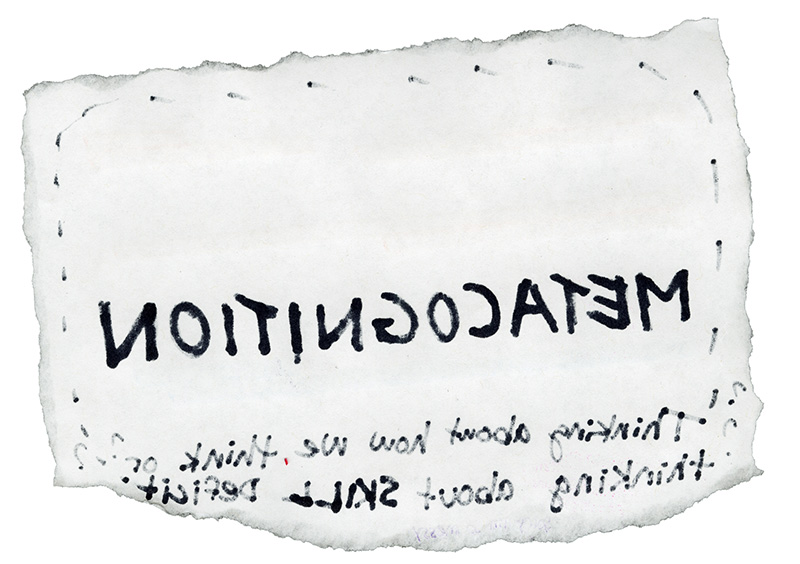 METACOGNITION
Thinking about how we think or??
thinking about SKILL Deficit